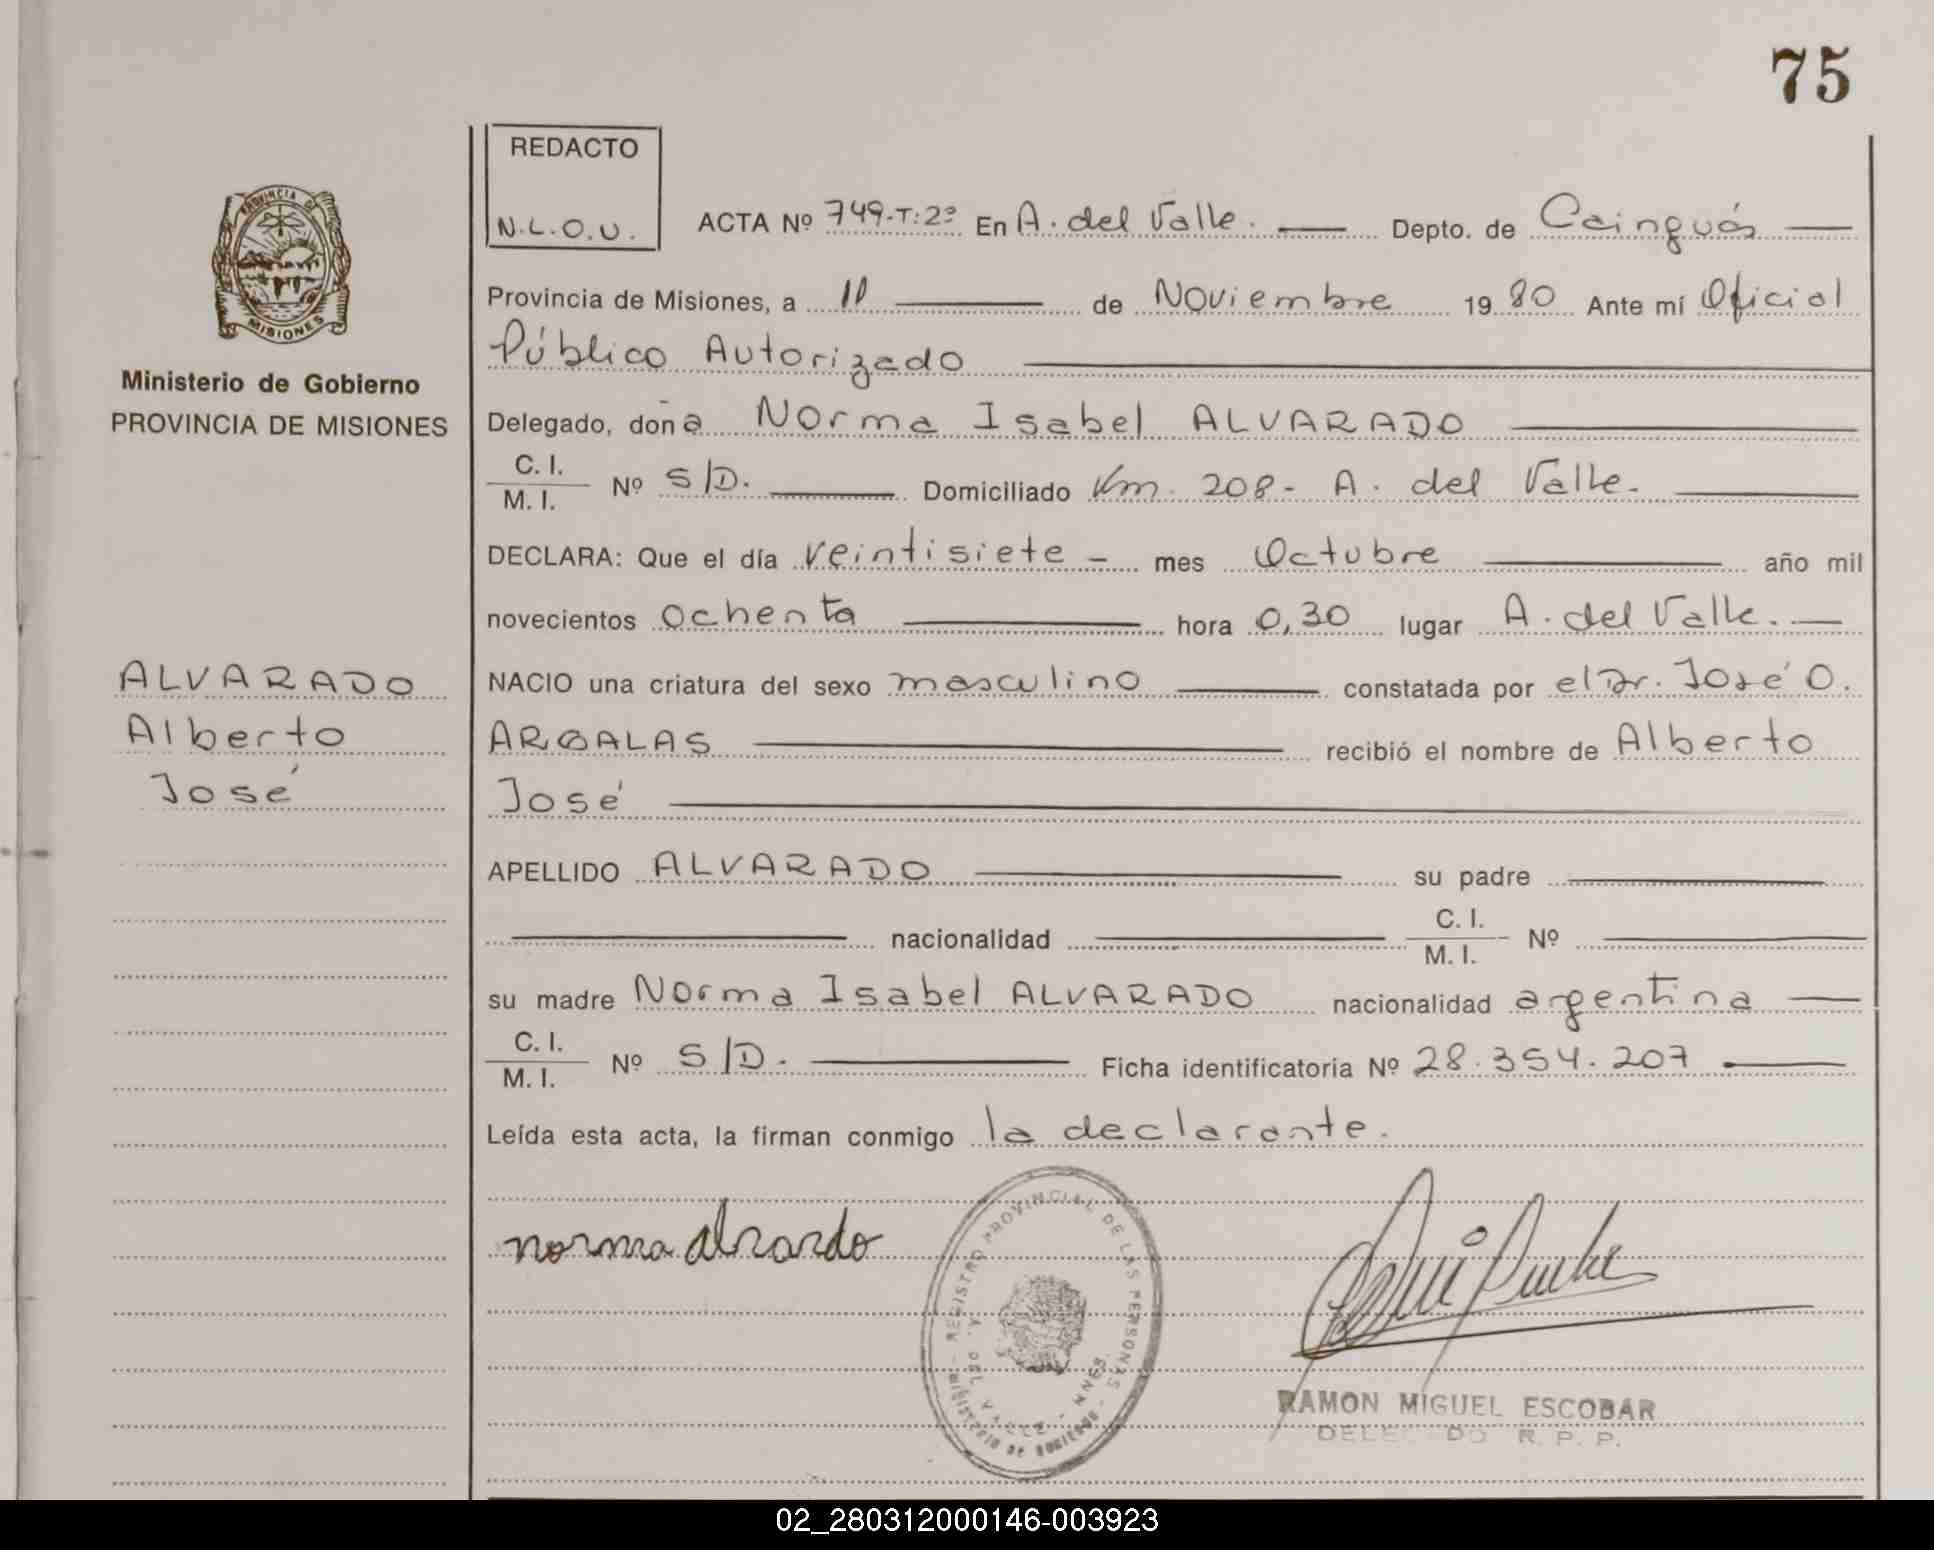 75
REDACTO
N.L.O.U.
ACTA Nº 749-T:2º En A. del Valle. Depto. de Cainguás
Provincia de Misiones, a 11 de Noviembre 1980 Ante mí Oficial
Público Autorizado
PROVINCIA DE
MISIONES
Ministerio de Gobierno
PROVINCIA DE MISIONES
Delegado, doña Norma Isabel ALVARADO
C. I.
M. I. Nº S/D. Domiciliado Km. 208- A. del Valle.
DECLARA: Que el día veintisiete - mes Octubre año mil
novecientos ochenta hora 0,30 lugar A. del Valle.
ALVARADO
Alberto
José
NACIO una criatura del sexo masculino constatada por el Dr. José O.
ARGALAS recibió el nombre de Alberto
José
APELLIDO ALVARADO su padre
nacionalidad C. I.
M. I. Nº
su madre Norma Isabel ALVARADO nacionalidad argentina
C. I.
M. I. Nº S/D. Ficha identificatoria Nº 28.354.207
Leída esta acta, la firman conmigo la declarante.
norma alvarado
REGISTRO PROVINCIAL DE LAS PERSONAS
A. DEL VALLE - MNES.
MINISTERIO DE GOBIERNO
RAMON MIGUEL ESCOBAR
DELEGADO R. P. P.
02_280312000146-003923